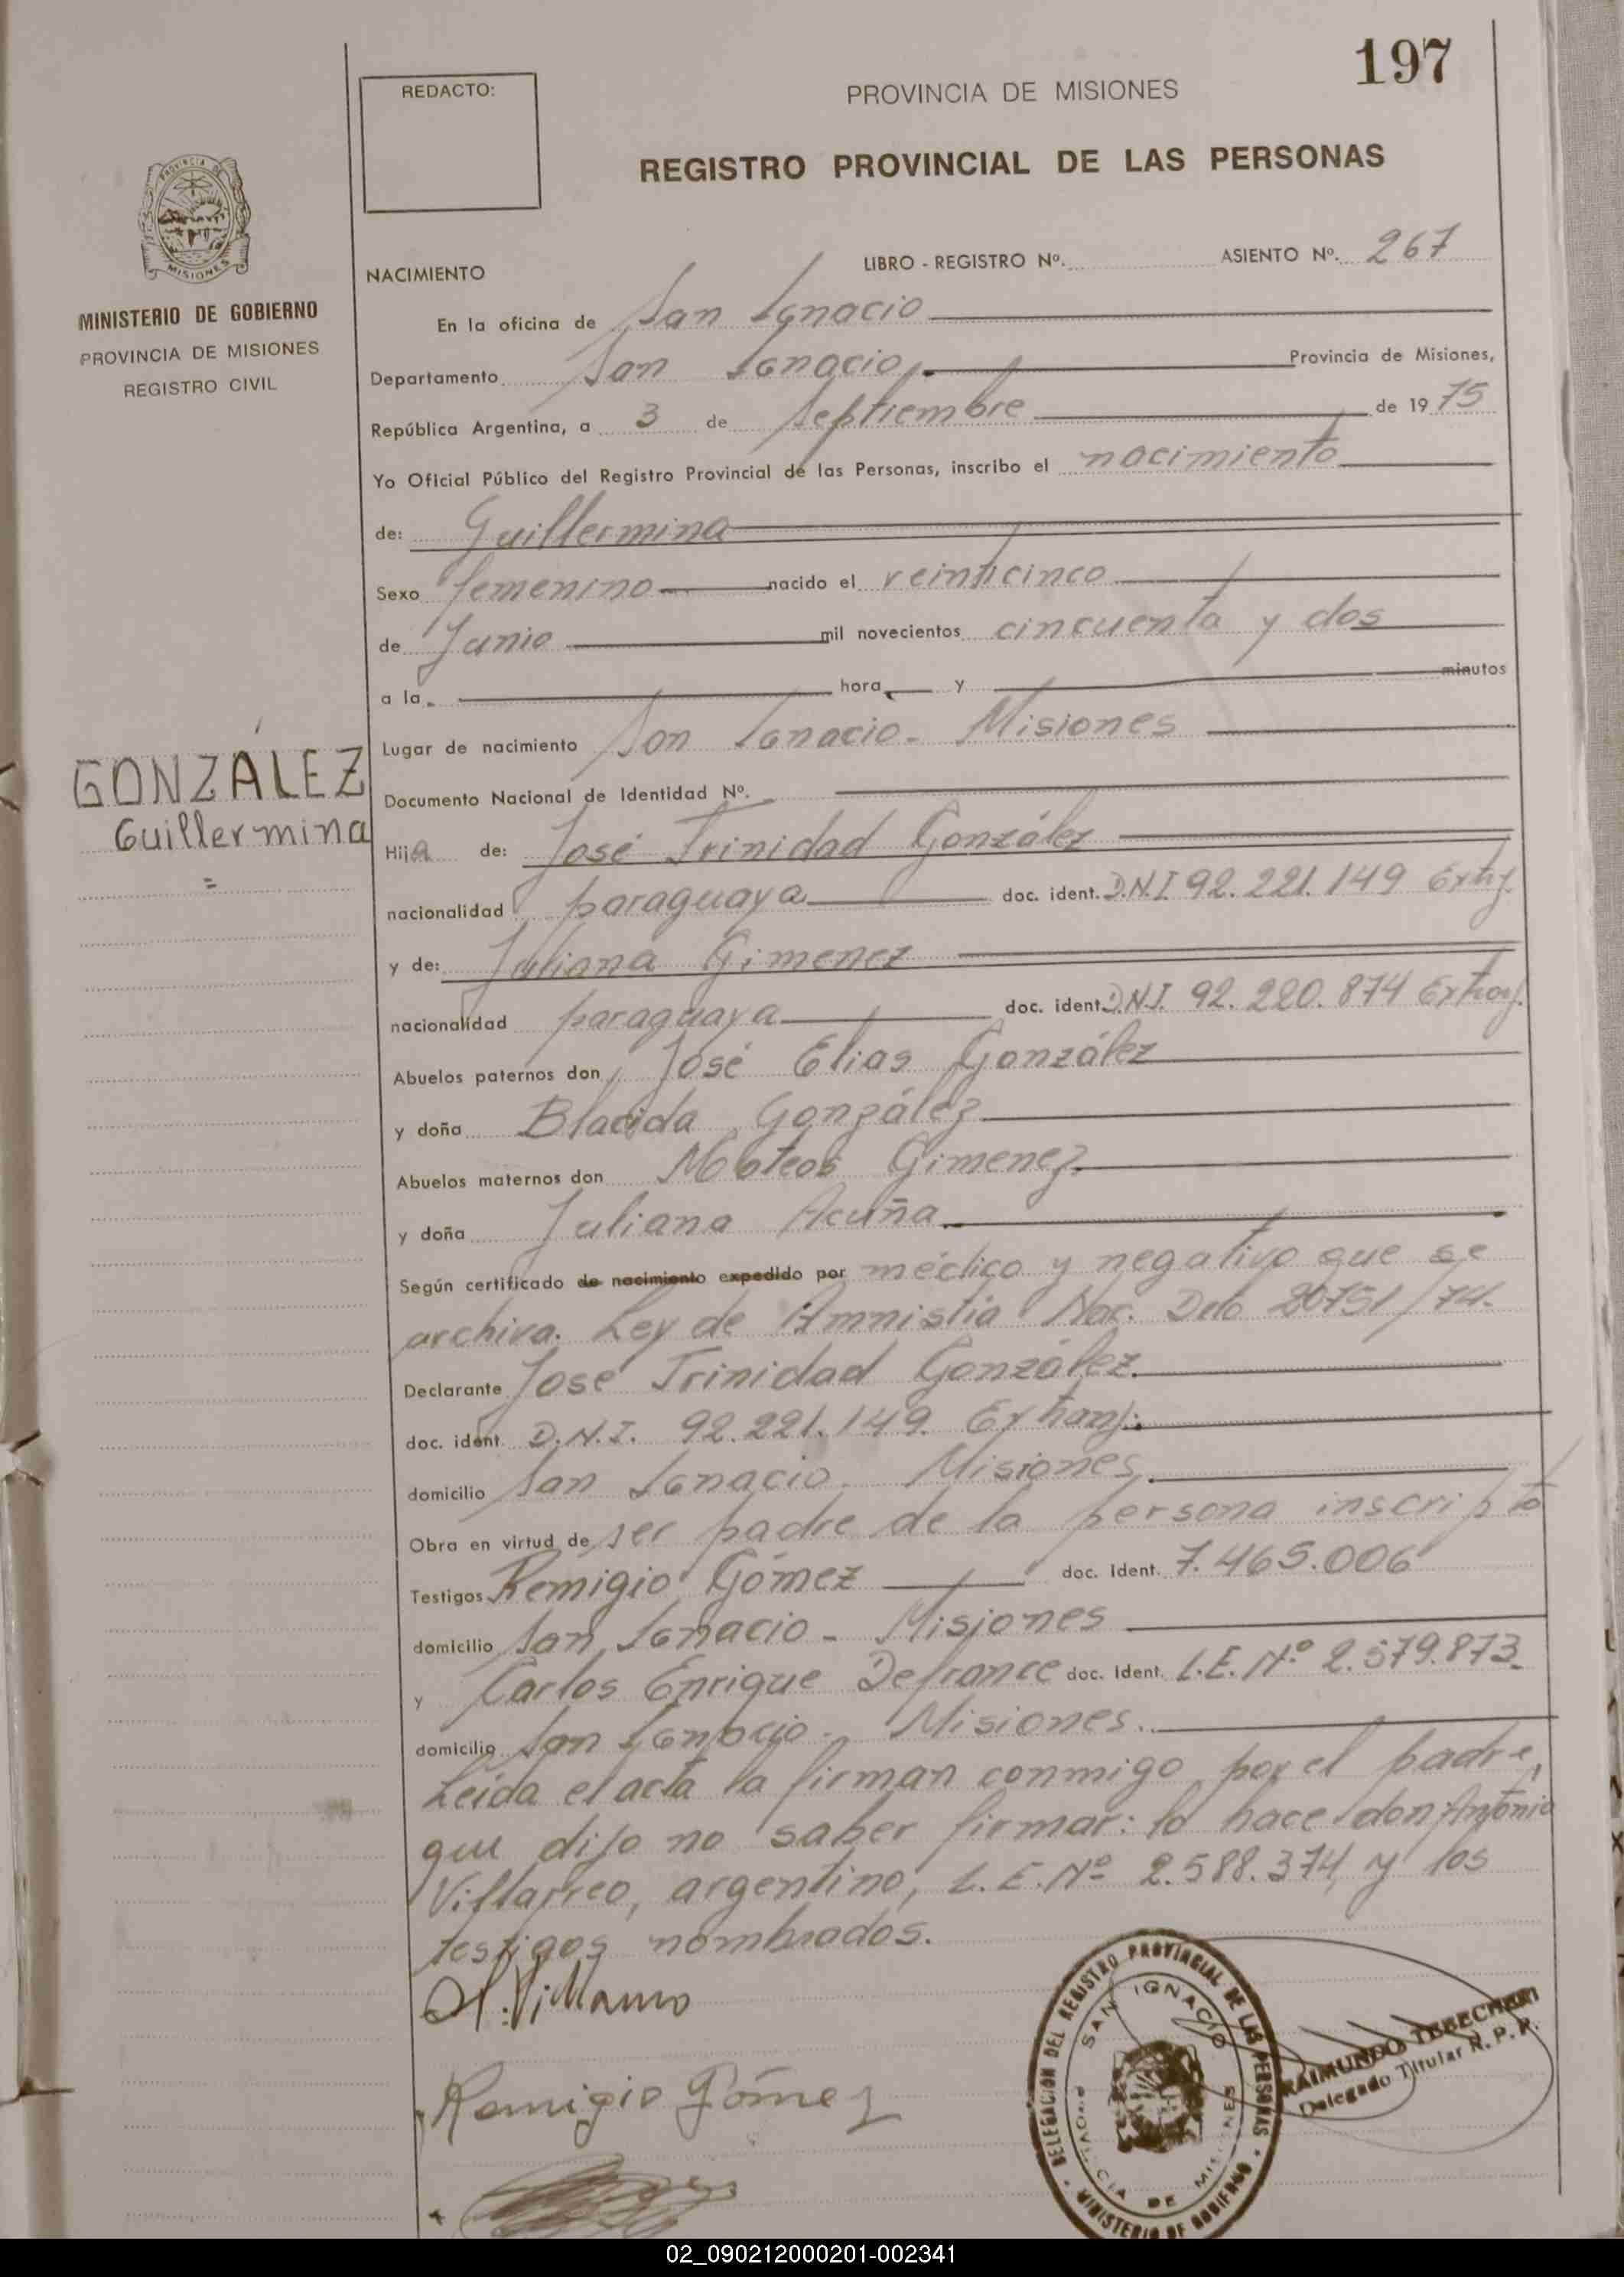 197
REDACTO:
PROVINCIA DE MISIONES
REGISTRO PROVINCIAL DE LAS PERSONAS
MISIONES
MINISTERIO DE GOBIERNO
PROVINCIA DE MISIONES
REGISTRO CIVIL
NACIMIENTO LIBRO - REGISTRO Nº. ASIENTO Nº. 267
En la oficina de San Ignacio
Departamento San Ignacio. Provincia de Misiones,
República Argentina, a 3 de Septiembre de 1975
Yo Oficial Público del Registro Provincial de las Personas, inscribo el nacimiento
de: Guillermina
Sexo femenino nacido el veinticinco
de Junio mil novecientos cincuenta y dos
a la hora y minutos
Lugar de nacimiento San Ignacio - Misiones
GONZÁLEZ
Guillermina
Documento Nacional de Identidad Nº.
Hija de: José Trinidad González
nacionalidad paraguaya doc. ident. D.N.I 92.221.149 Extrj.
y de: Juliana Gimenez
nacionalidad paraguaya doc. ident. D.N.I. 92.220.874 Extranj.
Abuelos paternos don José Elias González
y doña Blacida González
Abuelos maternos don Mateos Gimenez
y doña Juliana Acuña
Según certificado de nacimiento expedido por médico y negativo que se
archiva. Ley de Amnistia Nac. Dto 20751/74.
Declarante José Trinidad González.
doc. ident. D.N.I. 92.221.149. Extranj.
domicilio San Ignacio. Misiones.
Obra en virtud de ser padre de la persona inscripta
Testigos Remigio Gómez doc. Ident. 7.465.006
domicilio San Ignacio - Misiones
y Carlos Enrique Defrance doc. Ident. L.E. Nº 2.579.873.
domicilio San Ignacio. Misiones.
Leida el acta la firman conmigo por el padre,
que dijo no saber firmar: lo hace don Antonio
Villarreo, argentino, L.E. Nº 2.588.374, y los
testigos nombrados.
Remigio Gómez
DELEGACION DEL REGISTRO PROVINCIAL DE LAS PERSONAS
SAN IGNACIO
PROVINCIA DE MISIONES
MINISTERIO DE GOBIERNO
RAIMUNDO TERECHERI
Delegado Titular R. P. P.
02_090212000201-002341